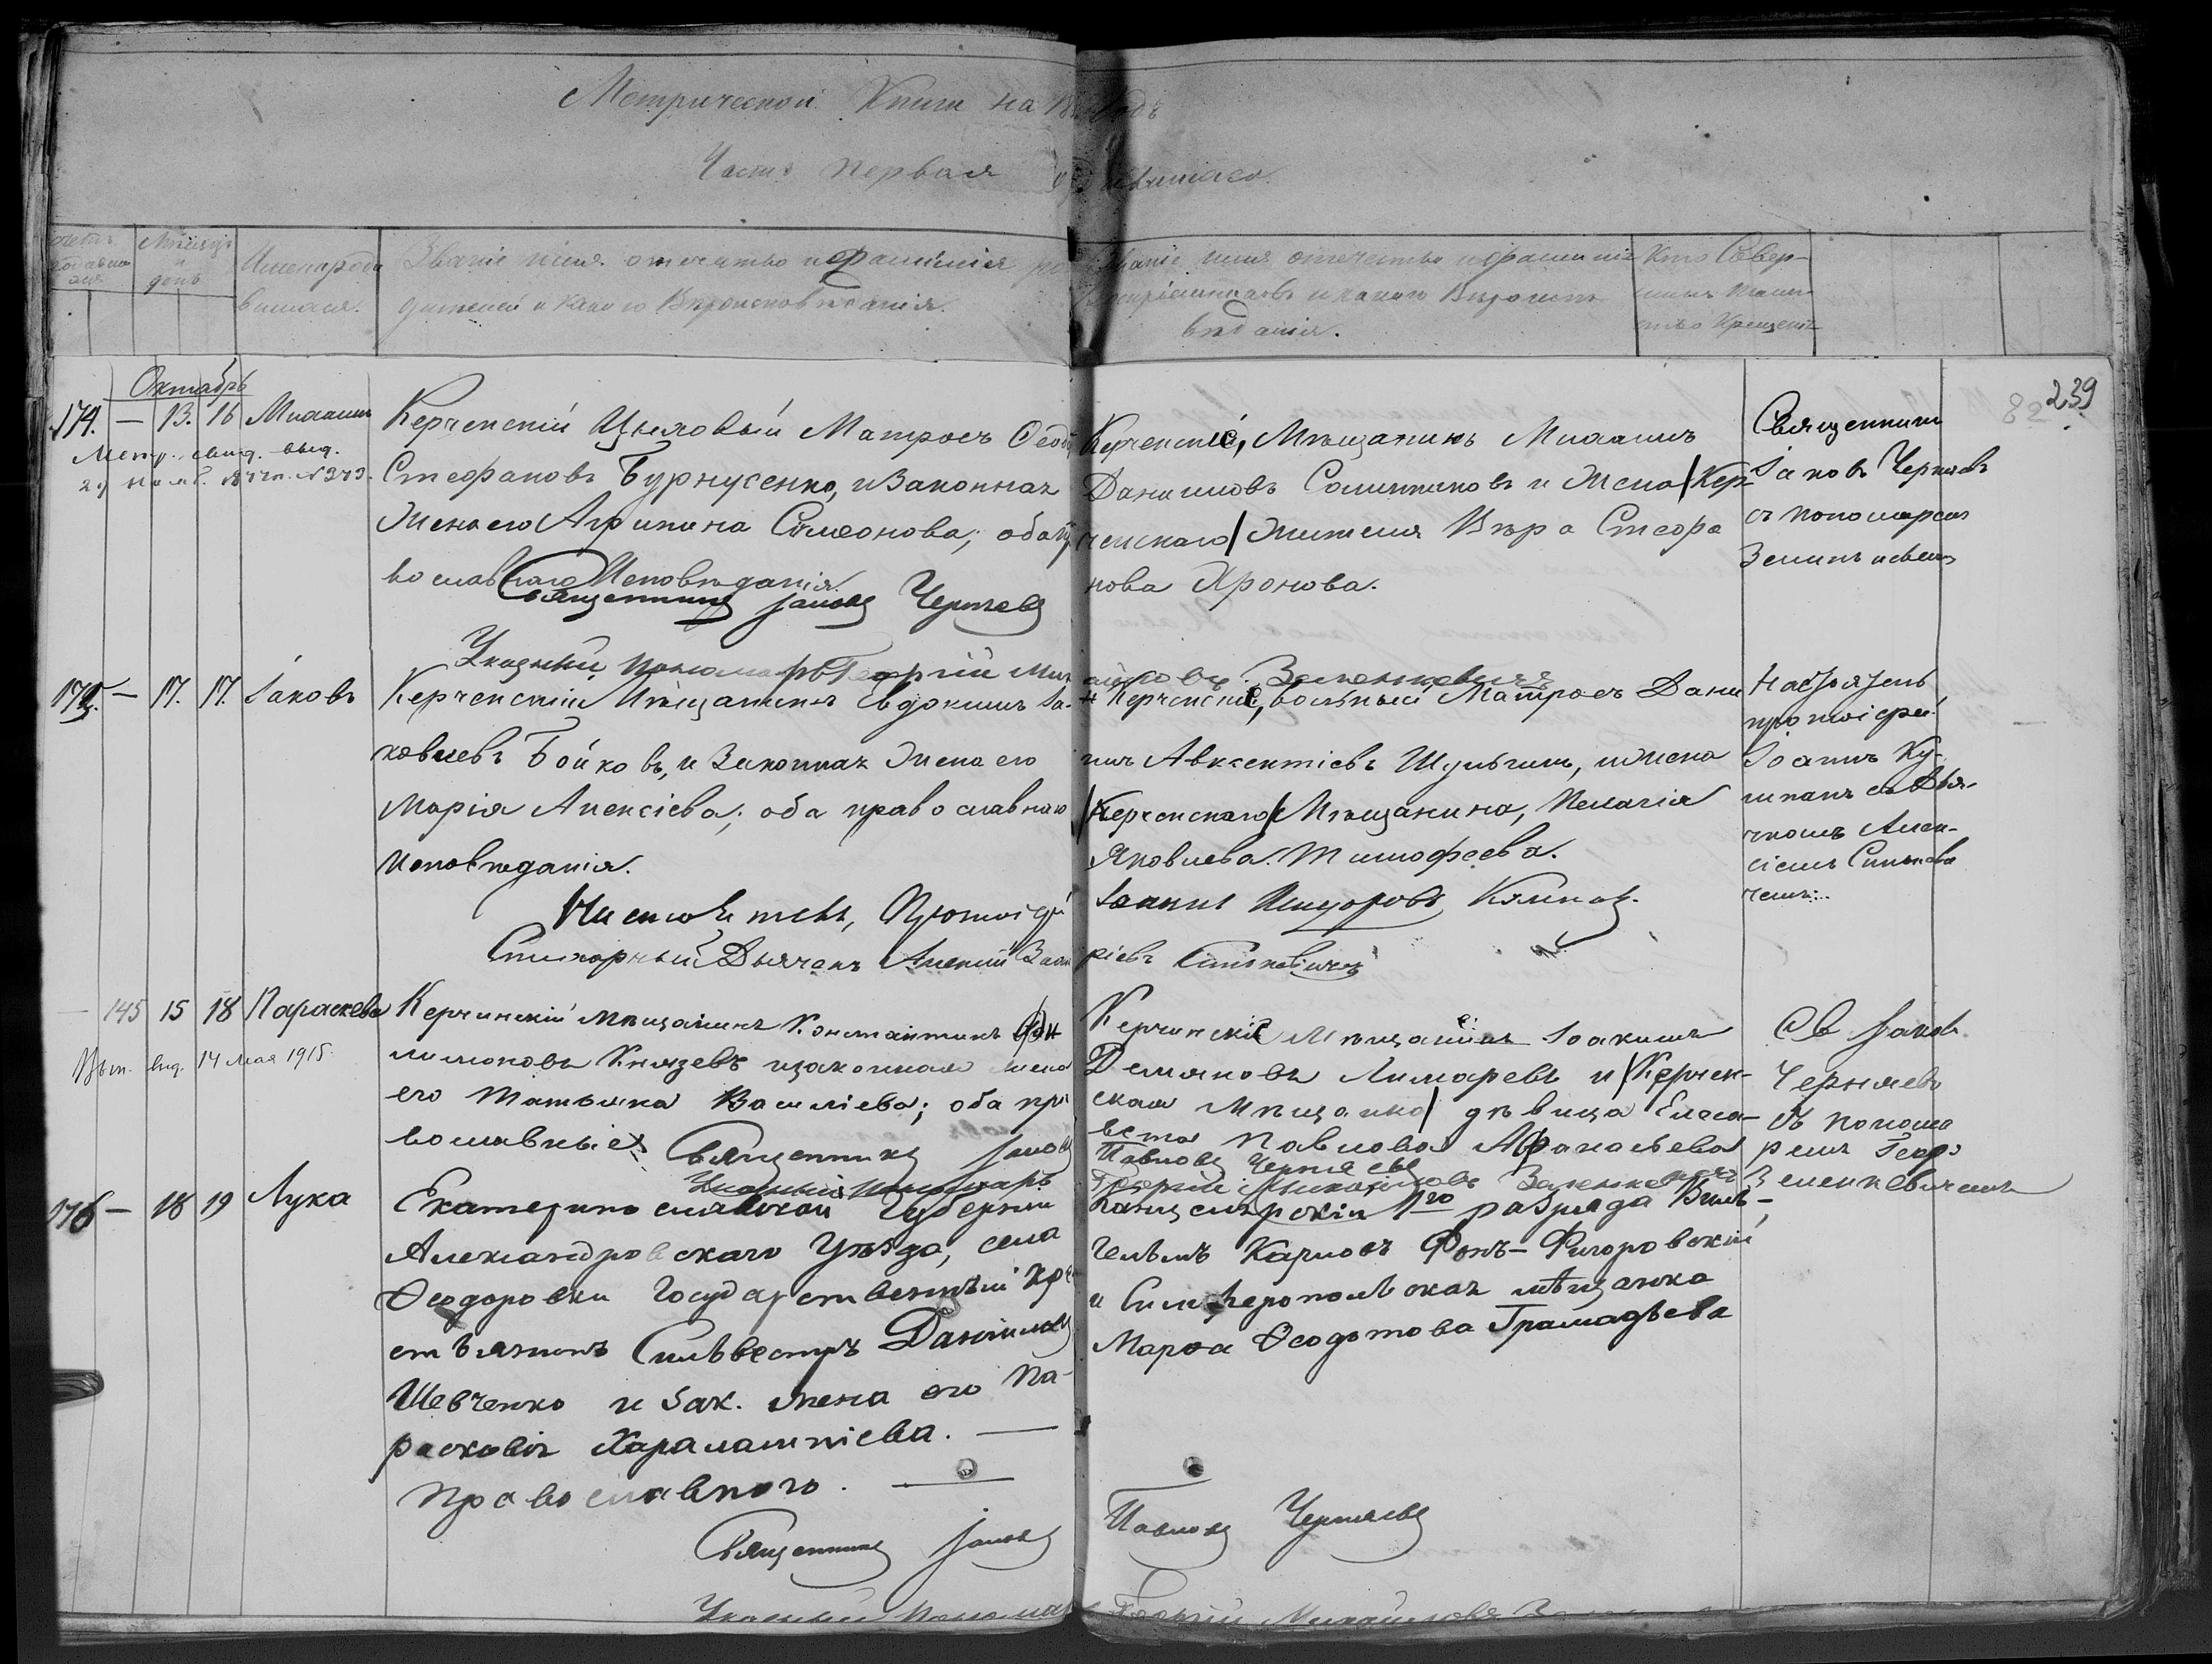 Метрической Книги на 18 Годъ
Часть первая
Мѣсяцъ и день
Имена родившихся.
Званіе имя отечество и фамилія родителей и какого Вѣроисповѣданія.
Званіе имя отечество и фамилія Воспріемниковъ и какого Вѣроисповѣданія.
Кто Совершалъ Таинство Крещенія
239
82
Октябрь
174. — 13. 16 Михаилъ
Метр. свид. выд.
Керченскій Цеховый Матросъ Ѳеодо
Стефановъ Бурнусенко, и Законная
Жена его Агрипина Симеонова; оба пра
вославнаго Исповѣданія.
Священникъ Іаковъ Черняевъ
Керченскіе, Мѣщанинъ Михаилъ
Даниловъ Солитниковъ и Жена /Кер-
ченскаго/ Жителя Вѣра Стефа
нова Хронова.
Священникъ
Іаковъ Черняевъ
съ пономаремъ
Указный, пономарь Георгій Мих
айловъ Зеленкевичъ
175. — 17. 17. Іаковъ
Керченскій Мѣщанинъ Евдокимъ Іа-
ковлевъ Бойковъ, и Законная Жена его
Марія Алексіева; оба православнаго
Исповѣданія.
Настоятель, Протоіерей
Стихарный Дьячекъ Алексій Васи
Керченскіе, вольный Матросъ Дани
илъ Авксентіевъ Шульгинъ, и Жена
/Керченскаго/ Мѣщанина, Пелагія
Яковлева Тимофеева.
Іоаннъ
ріевъ Синькевичъ
Настоятель
протоіерей
Іоаннъ Ку-
съ Дья-
чкомъ Алек-
сіемъ Синькеви
чемъ.
145 15 18 Параскева
Вып. выд. 14 Мая 1915.
Керчинскій мѣщанинъ Константинъ Фи
лимоновъ Князевъ и законная жена
его Татьяна Василіева; оба пра
вославные
Священникъ Іаковъ
Указный Пономарь
Керчинскіе мѣщанинъ Іоакимъ
Демяновъ Лимаревъ и /Керчен-
ская мѣщанка/ дѣвица Елиса-
вета Павлова Афанасьева
Павловъ Черняевъ
Георгій Михайловъ Зеленкевичъ
Св Іаковъ
Черняевъ
съ понома
ремъ Геор
Зеленкевичемъ
176 — 18 19 Лука
Екатеринославской Губерніи
Александровскаго Уѣзда, села
Ѳеодоровки Государственный Кре
стьянинъ Сильвестръ Даниловъ
Шевченко и Зак. жена его Па-
расковія Харалампіева. —
Православнаго. —
Священникъ Іаковъ
Канцелярскій 1го разряда Виль-
гельмъ Карловъ Фонъ-Фигоровскій
и Симферопольская мѣщанка
Марѳа Ѳеодотова Грамадѣева
Павловъ Черняевъ
Указный Пономарь Георгій Михайловъ